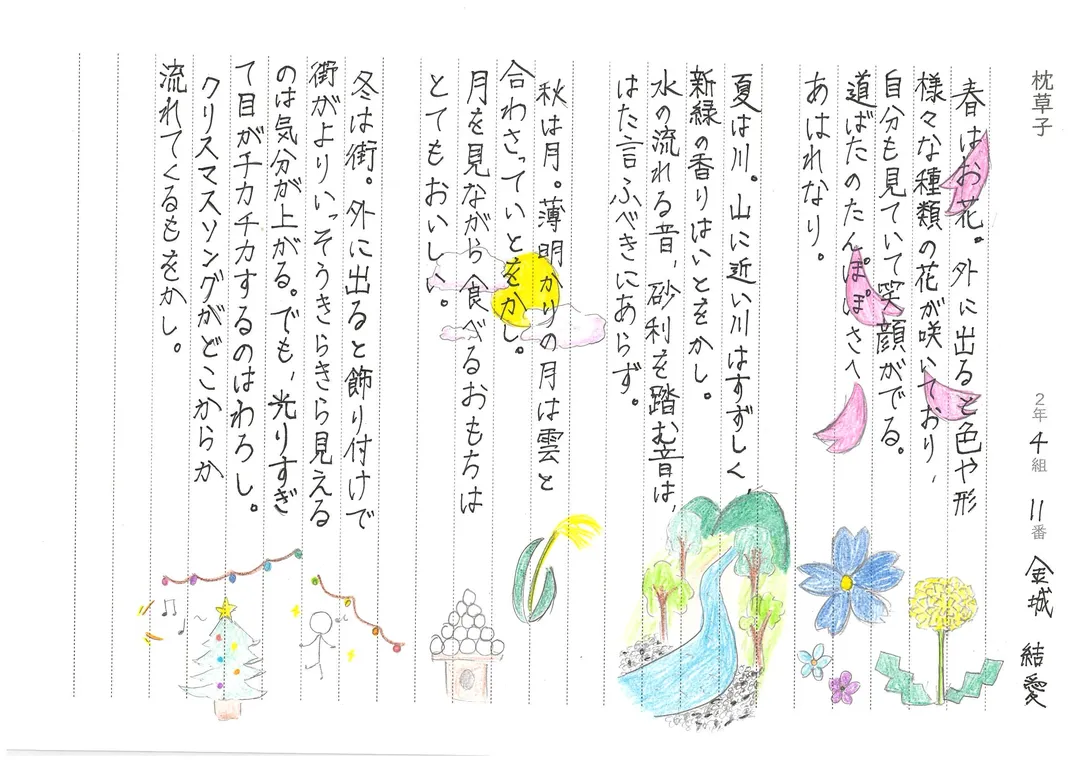 枕草子
2年4組 11番 金城 結愛
春はお花。外に出ると色や形
様々な種類の花が咲いており、
自分も見ていて笑顔がでる。
道ばたのたんぽぽさへ
あはれなり。
夏は川。山に近い川はすずしく、
新緑の香りはいとをかし。
水の流れる音、砂利を踏む音は、
はた言ふべきにあらず。
秋は月。薄明かりの月は雲と
合わさっていとをかし。
月を見ながら食べるおもちは
とてもおいしい。
冬は街。外に出ると飾り付けで
街がよりいっそうきらきら見える
のは気分が上がる。でも、光りすぎ
て目がチカチカするのはわろし。
クリスマスソングがどこからか
流れてくるもをかし。